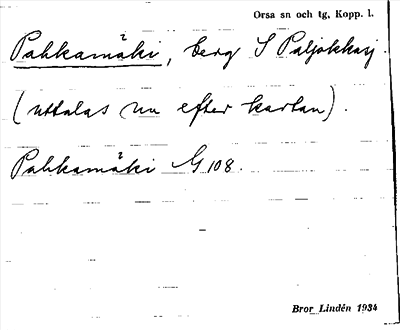 Orsa sn och tg, Kopp. l.
Pahkamäki, berg S Paljakkasj.
(uttalas nu efter kartan).
Pahkamäki G 108.
Bror Lindén 1934